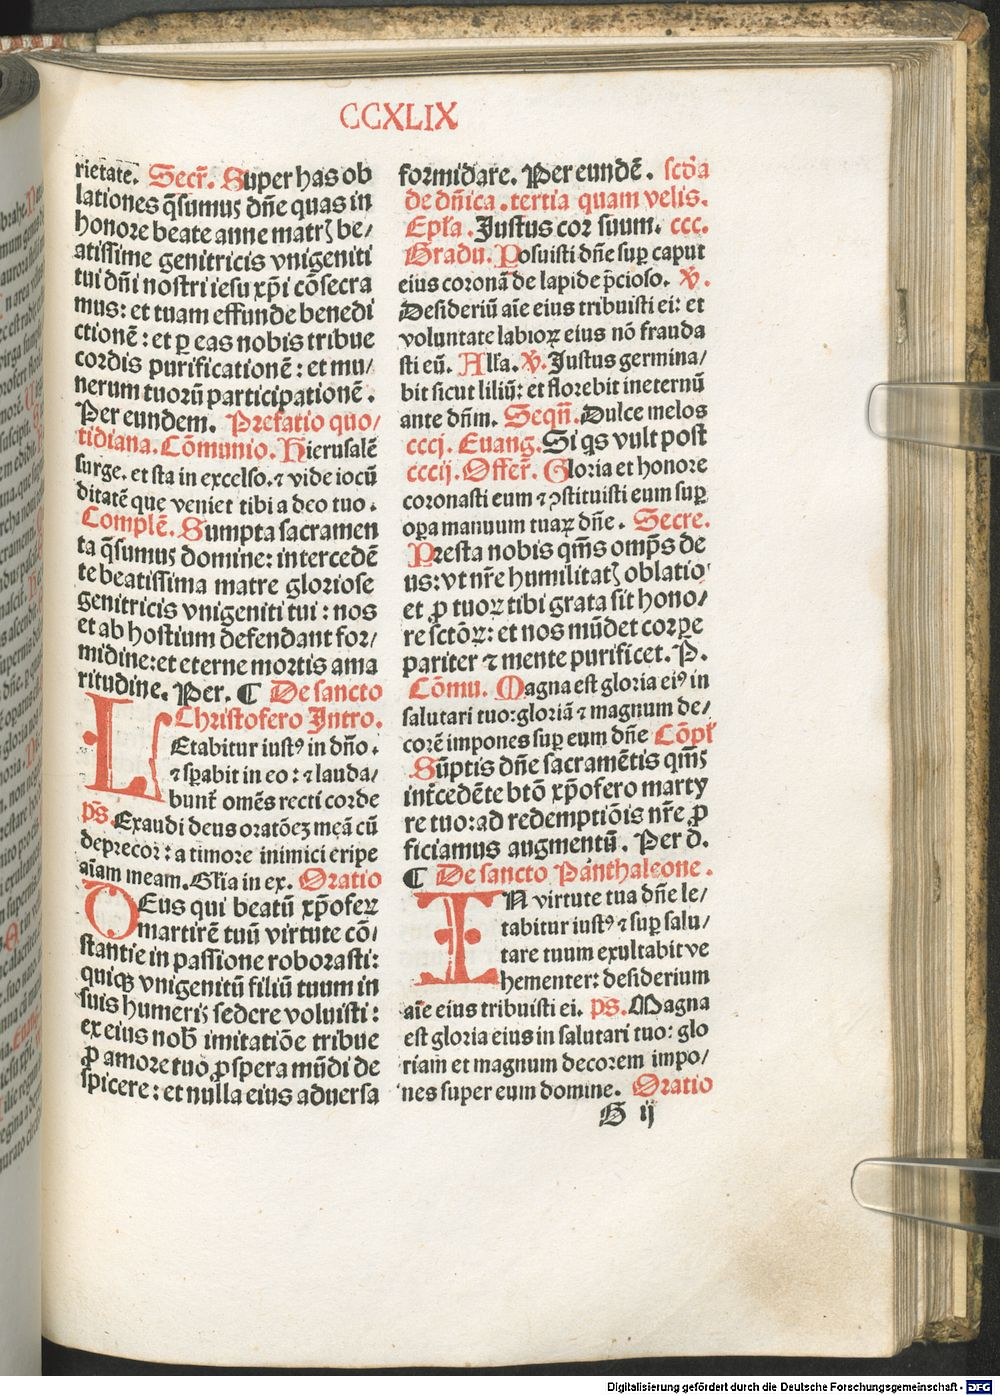 CCXLIX
rietate. Secr̄. Super has ob
lationes q̄sumus dn̄e quas in
honore beate anne matrꝫ be/
atissime genitricis vnigeniti
tui dn̄i nostri iesu xp̄i cōsecra
mus: et tuam effunde benedi
ctionē: et ꝑ eas nobis tribue
cordis purificationē: et mu/
nerum tuorū participationē.
Per eundem. Prefatio quo/
tidiana. Cōmunio. Hierusalē
surge. et sta in excelso. ⁊ vide iocū
ditatē que veniet tibi a deo tuo.
Complē. Sumpta sacramen
ta q̄sumus domine: intercedē
te beatissima matre gloriose
genitricis vnigeniti tui: nos
et ab hostium defendant for/
midine: et eterne mortis ama
ritudine. Per. ¶ De sancto
Christofero Intro.
LEtabitur iustꝰ in dn̄o.
⁊ sꝑabit in eo: ⁊ lauda/
bunt̄ omēs recti corde
ps̄. Exaudi deus oratōeꝫ meā cū
deprecor: a timore inimici eripe
aīam meam. Glīa in ex. Oratio
DEus qui beatū xp̄oferꝝ
martirē tuū virtute cō/
stantie in passione roborasti:
quiqꝫ vnigenitū filiū tuum in
suis humeris sedere voluisti:
ex eius nob̄ imitatiōe tribue
ꝓ amore tuo ꝓspera mūdi de
spicere: et nulla eius aduersa
formidare. Per eundē. scd̄a
de dn̄ica. tertia quam velis.
Epl̄a. Justus cor suum. ccc.
Gradu. Posuisti dn̄e suꝑ caput
eius coronā de lapide p̄cioso. ꝟ.
Desideriū aīe eius tribuisti ei: et
voluntate labioꝝ eius nō frauda
sti eū. Alla. ꝟ. Justus germina/
bit sicut liliū: et florebit ineternū
ante dn̄m. Seqn̄. Dulce melos
cccj. Euang. Si qs vult post
cccij. Offer̄. Gloria et honore
coronasti eum ⁊ ꝯstituisti eum suꝑ
oꝑa manuum tuaꝝ dn̄e. Secre.
Presta nobis qm̄s omp̄s de
us: vt nr̄e humilitatꝫ oblatio
et ꝓ tuoꝝ tibi grata sit hono/
re sctōꝝ: et nos mūdet corꝑe
pariter ⁊ mente purificet. P.
Cōmu. Magna est gloria eiꝰ in
salutari tuo: gloriā ⁊ magnum de/
corē impones suꝑ eum dn̄e Cōpl̄
Sūptis dn̄e sacramētis qm̄s
int̄cedēte btō xp̄ofero marty
re tuo: ad redemptiōis nr̄e ꝓ
ficiamus augmentū. Per d.
¶ De sancto Panthaleone.
IN virtute tua dn̄e le/
tabitur iustꝰ ⁊ suꝑ salu/
tare tuum exultabit ve
hementer: desiderium
aīe eius tribuisti ei. ps̄. Magna
est gloria eius in salutari tuo: glo
riam et magnum decorem impo/
nes super eum domine. Oratio
G ij
Digitalisierung gefördert durch die Deutsche Forschungsgemeinschaft - DFG